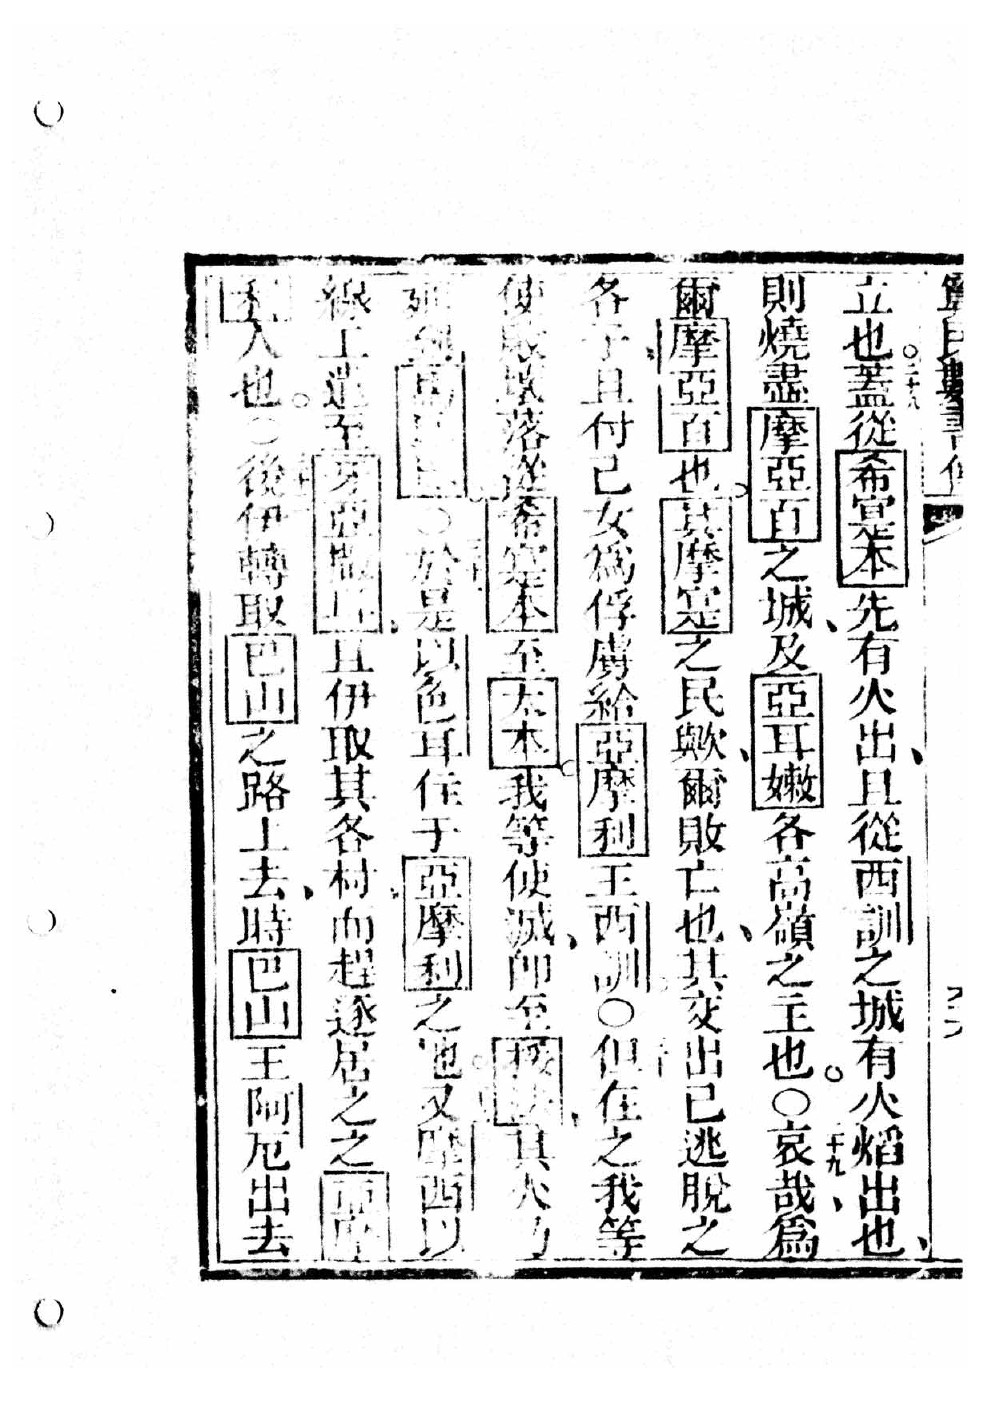 立也○二十八蓋從希寔本先有火出且從西訓之城有火焰出也
則燒盡摩亞百之城及亞耳嫩各高嶺之主也○二十九哀哉爲
爾摩亞百也其摩寔之民歟爾敗亡也其交出己逃脫之
各子且付己女爲俘虜給亞摩利王西訓○但在之我等
使敗墜落從希寔本至太本我等使滅即至 其火乃
○於是以色耳住于亞摩利之地又摩西以
線工遣至牙亞 且伊取其各村而趕逐居之之亞摩
利人也○後伊轉取巴山之路上去時巴山王阿厄出去